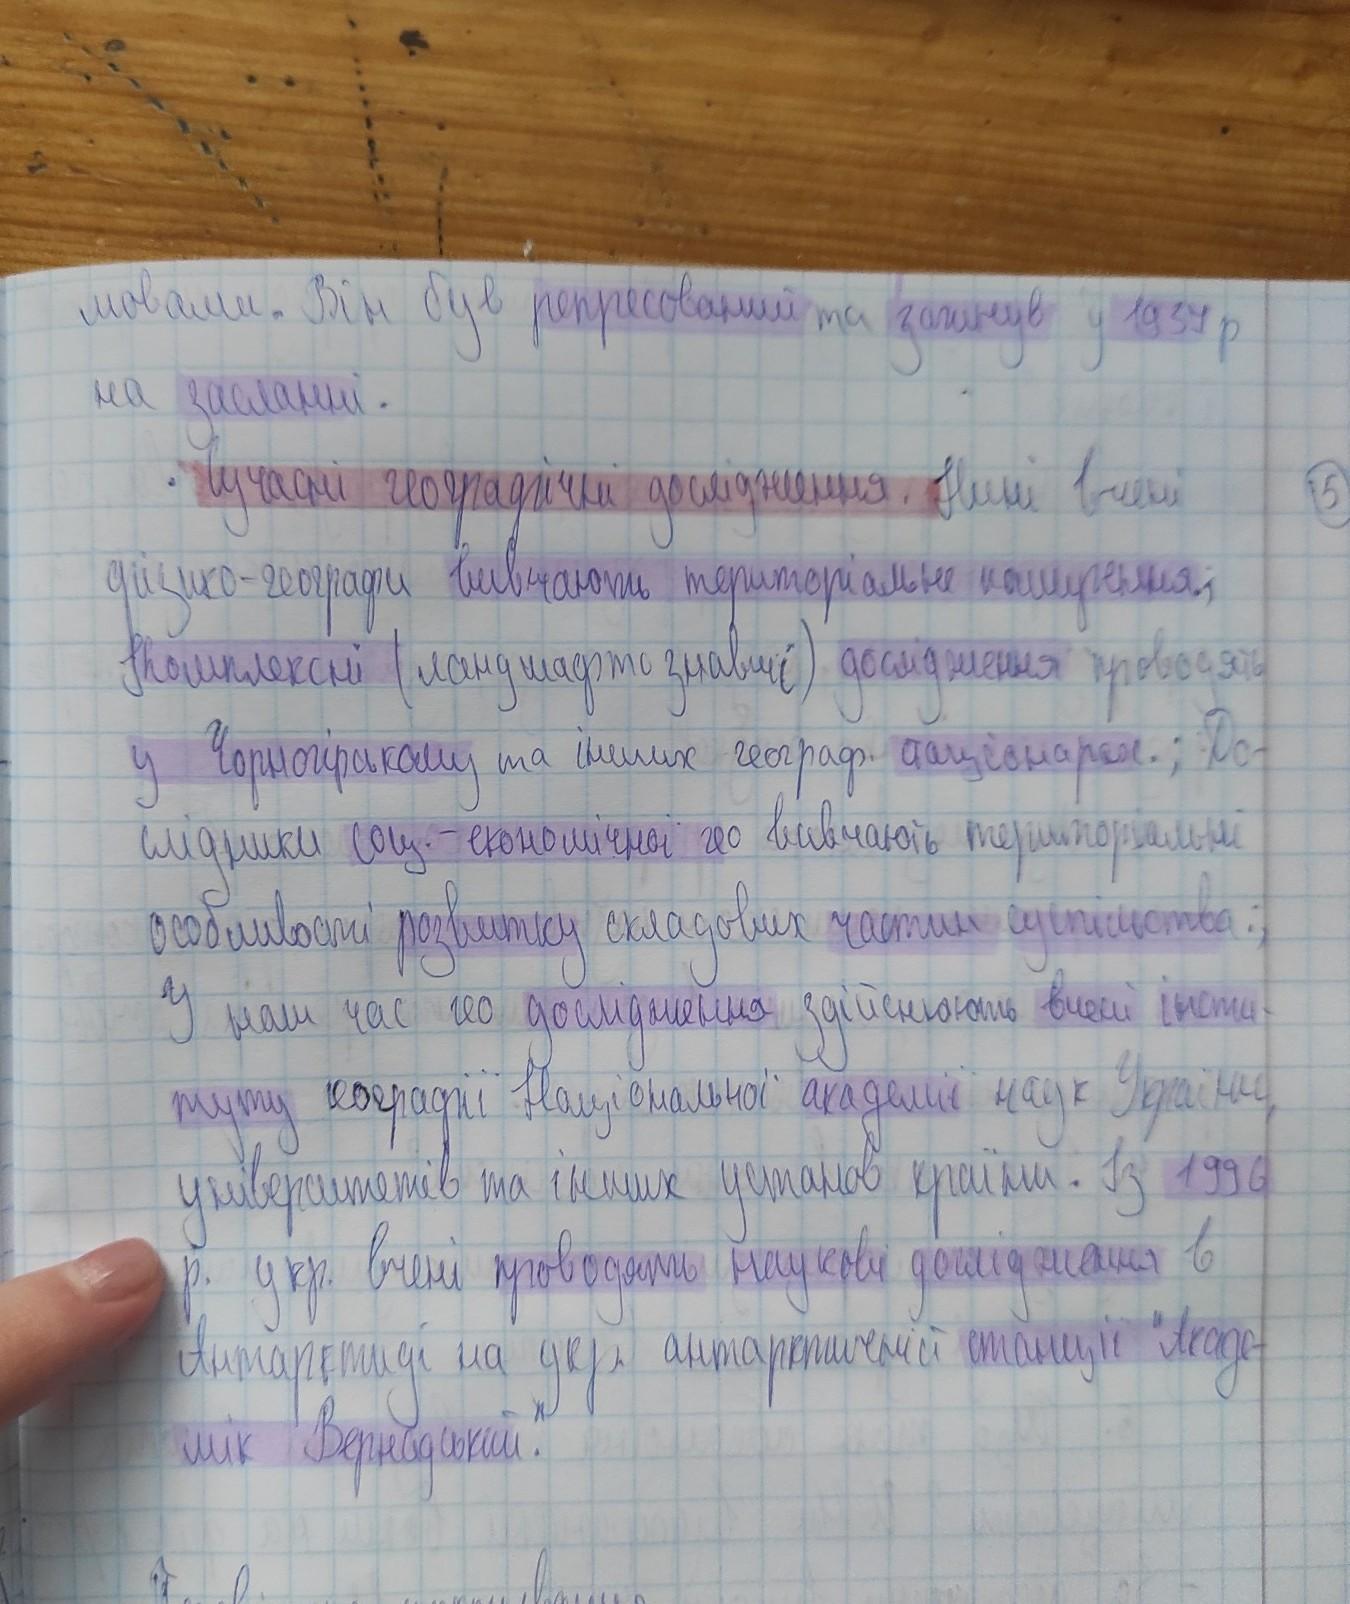 мовами. Він був репресований та загинув у 1937 р
на засланні.
. Сучасні географічні дослідження. Нині вчені
фізико-географи вивчають територіальне поширення.;
Комплексні (ландшафтознавчі) дослідження проводять
у Чорногірському та інших географ. стаціонарах.; До-
слідники соц.-економічної гео вивчають територіальні
особливості розвитку складових частин суспільства.;
У наш час гео дослідження здійснюють вчені інсти-
туту географії Національної академії наук України,
університетів та інших установ країни. Із 1996
р. укр. вчені проводять наукові дослідження в
Антарктиді на укр. антарктичній станції "Акаде-
мік Вернадський".
15